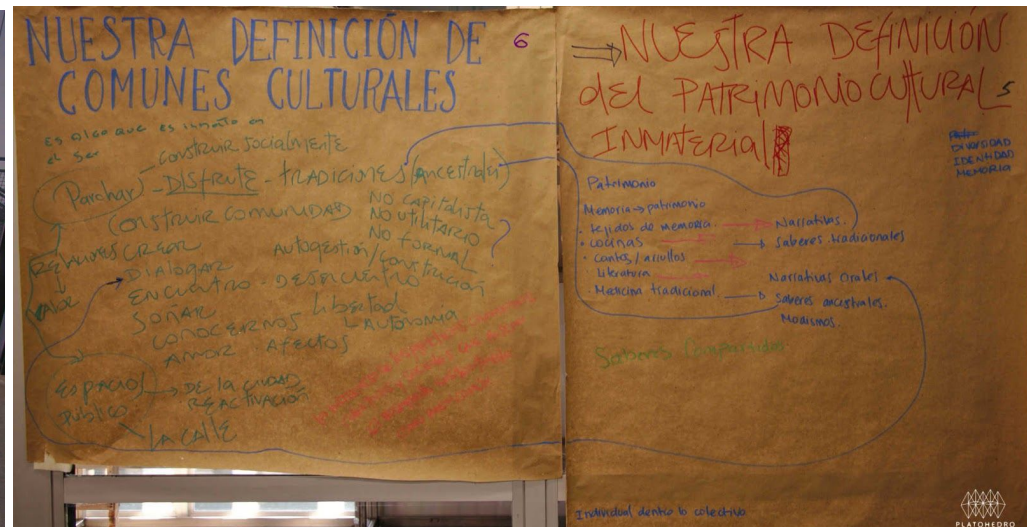 NUESTRA DEFINICIÓN DE
COMUNES CULTURALES
6
Es algo que es innato en
el ser
construir socialmente
Parchar - DISFRUTE - tradiciones (ancestrales)
Construir comunidad
NO CAPITALISTA
NO UTILITARIO
NO FORMAL
RELACIONES CREAR
Autogestión/construcción
DIALOGAR
ENCUENTRO - DESENCUENTRO
SOÑAR
Libertad
CONOCERNOS
Autónomia
AMOR AFECTOS
Espacio
público
DE la CIUDAD
REACTIVACIÓN
LA CALLE
NUESTRA DEFINICIÓN
del PATRIMONIO CULTURAL 5
INMATERIAL
DIVERSIDAD
IDENTIDAD
MEMORIA
Patrimonio
Memoria → patrimonio
· tejidos de memoria. Narrativas.
· cocinas → saberes tradicionales
· cantos/arrullos
Literatura Narrativas Orales
· Medicina tradicional. → Saberes ancestrales.
Modismos.
Saberes Compartidos
Individual dentro lo colectivo
PLATOHEDRO